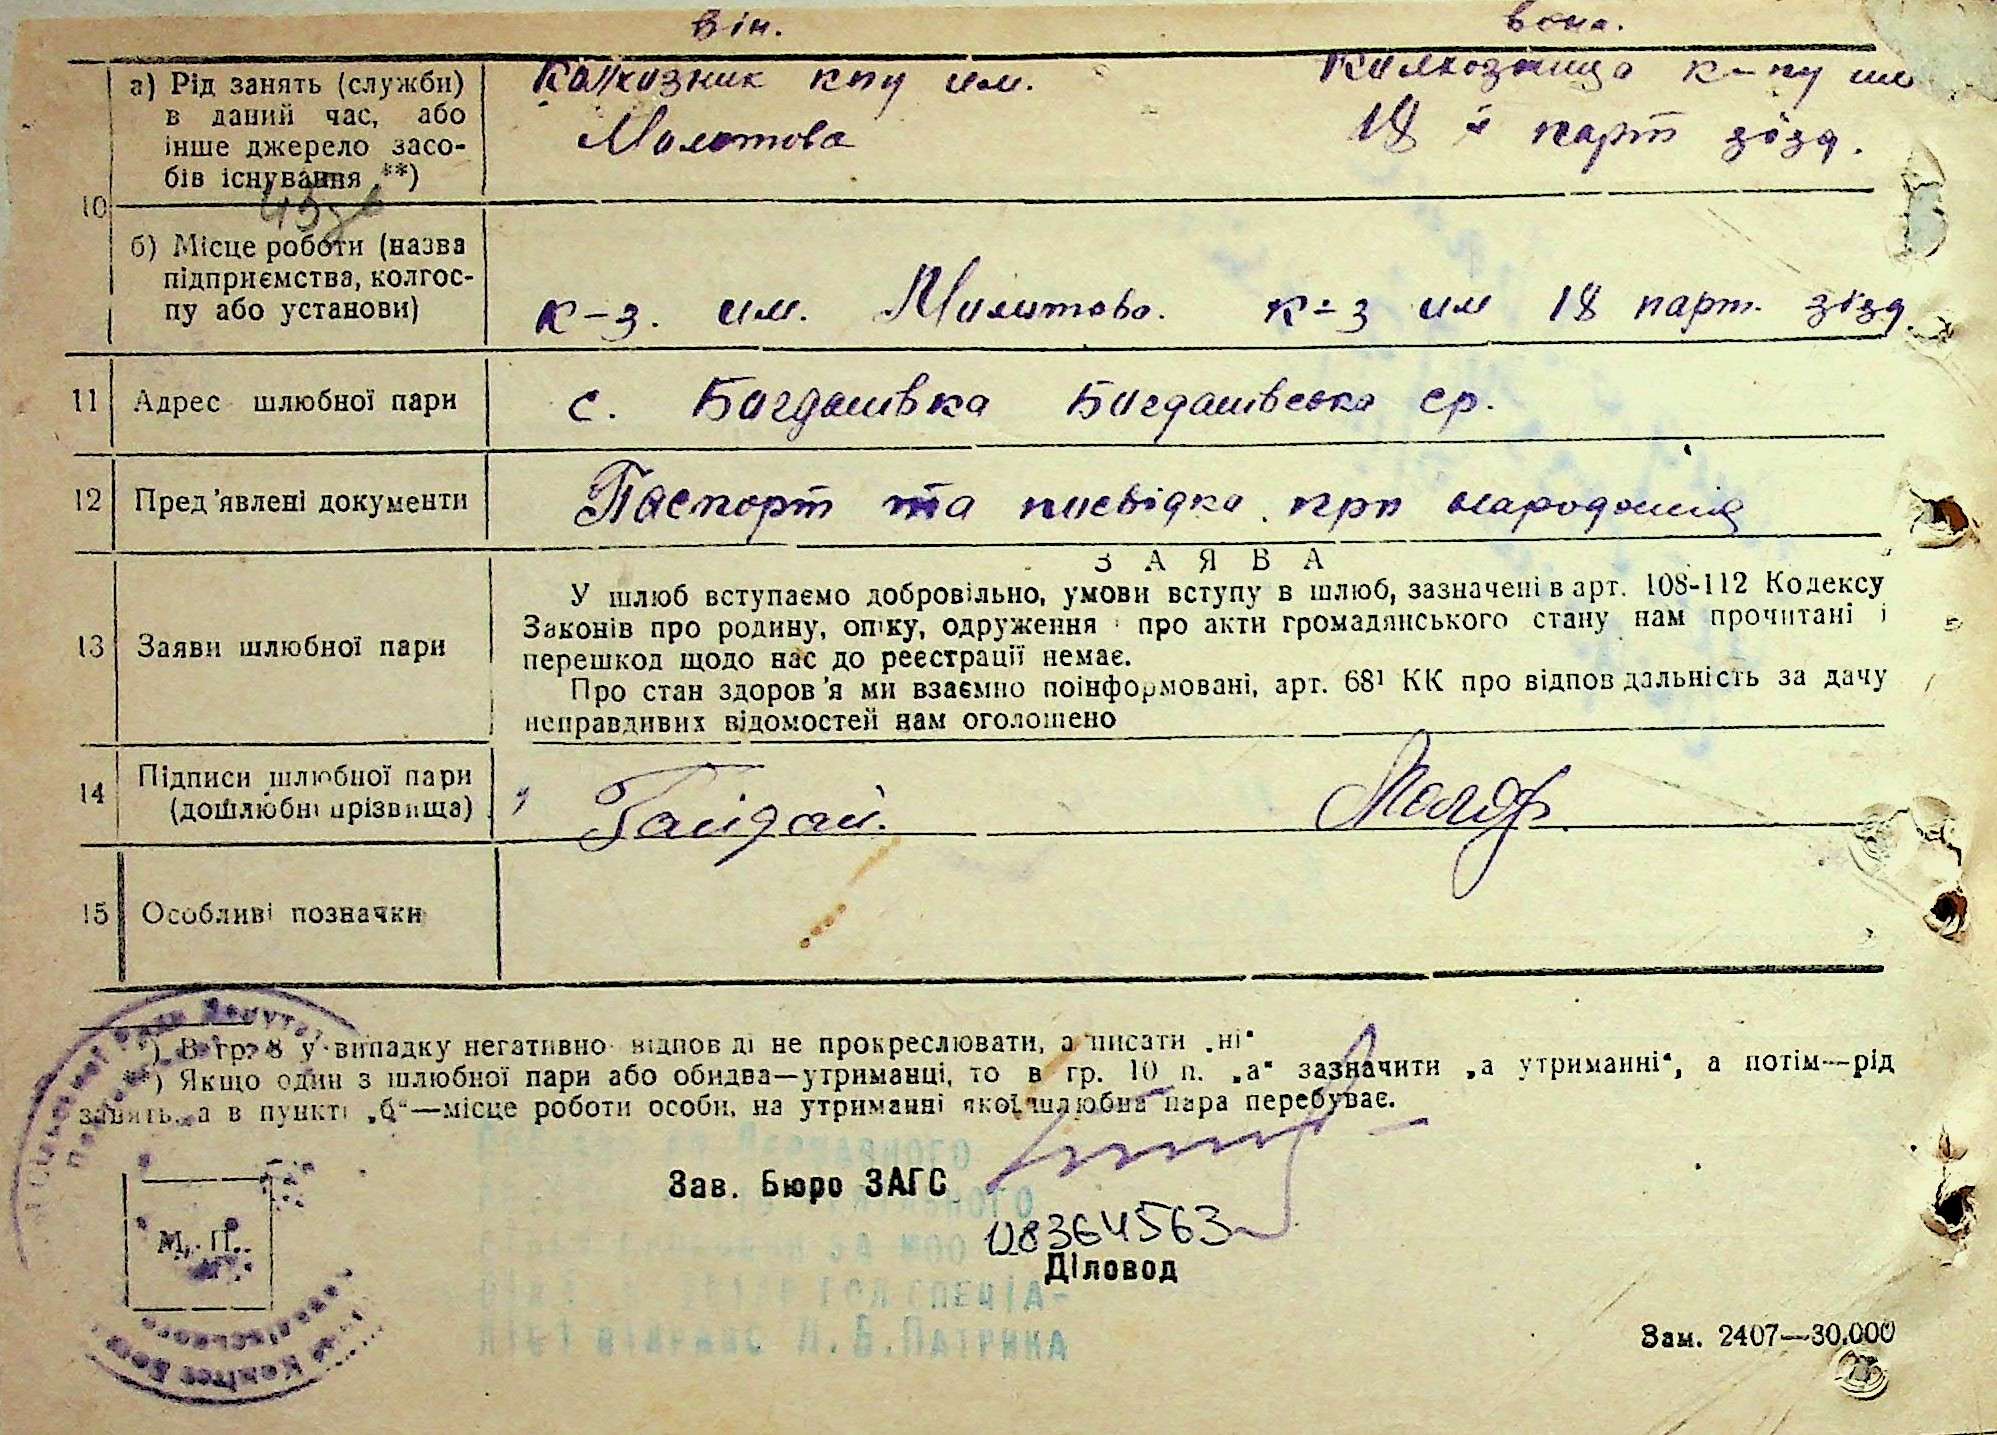 він. вона.
10
а) Рід занять (служби)
в даний час, або
інше джерело засо-
бів існування **)
Колхозник кпу им.
Молотова
Колхозница к-пу им
18 й парт зізд.
б) Місце роботи (назва
підприємства, колгос-
пу або установи)
к-з. им. Молотова. к-з им 18 парт. зізд.
11 Адрес шлюбної пари с. Богдашівка Богдашівська ср.
12 Пред'явлені документи Паспорт та посвідка про народження
13 Заяви шлюбної пари
ЗАЯВА
У шлюб вступаємо добровільно, умови вступу в шлюб, зазначені в арт. 108-112 Кодексу
Законів про родину, опіку, одруження і про акти громадянського стану нам прочитані і
перешкод щодо нас до реєстрації немає.
Про стан здоров'я ми взаємно поінформовані, арт. 68¹ КК про відповідальність за дачу
неправдивих відомостей нам оголошено
14 Підписи шлюбної пари
(дошлюбні прізвища)
Гайдай.
15 Особливі позначки
*) В гр. 8 у випадку негативної відповіді не прокреслювати, а писати „ні“
**) Якщо один з шлюбної пари або обидва—утриманці, то в гр. 10 п. „а“ зазначити „а утриманні“, а потім—рід
занять, а в пункті „б“—місце роботи особи, на утриманні якої шлюбна пара перебуває.
Зав. Бюро ЗАГС
Діловод
М. П.
П.Б.ПАТРИКА
Зам. 2407—30.000